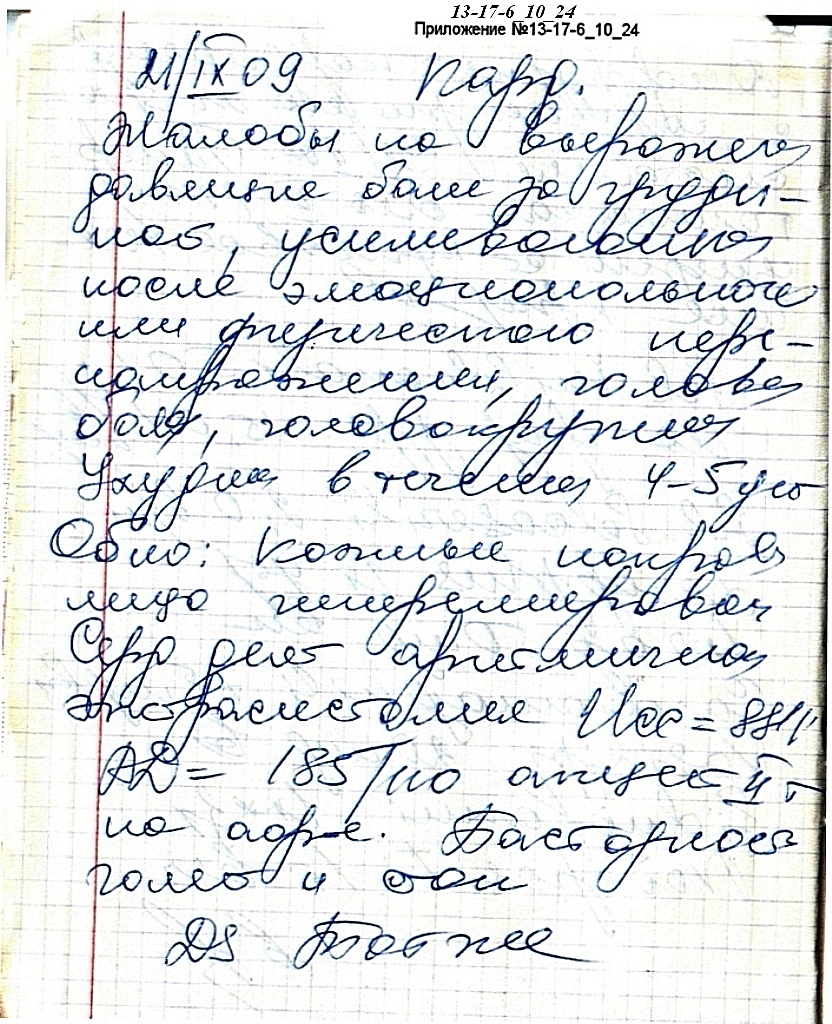 13-17-6_10_24
Приложение №13-17-6_10_24
21/IX 09 Кард.
Жалобы на выражен
давящие боли за груди-
ной, усиливающиеся
после эмоционального
или физического пере-
напряжения, головн
боли, головокружен
Ухудш в течении 4-5 дн
Об-но: кожные покров
лица гиперемирован
Серд деят аритмична
экстрасистолия Чсс = 88 1/
АД = 185/110 акцент II т
на аорте. Пастозность
голен и стоп
DS Тот же